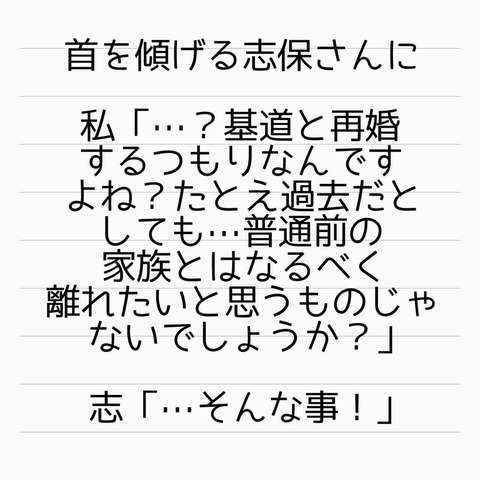 首を傾げる志保さんに
私「…？基道と再婚
するつもりなんです
よね？たとえ過去だと
しても…普通前の
家族とはなるべく
離れたいと思うものじゃ
ないでしょうか？」
志「…そんな事！」